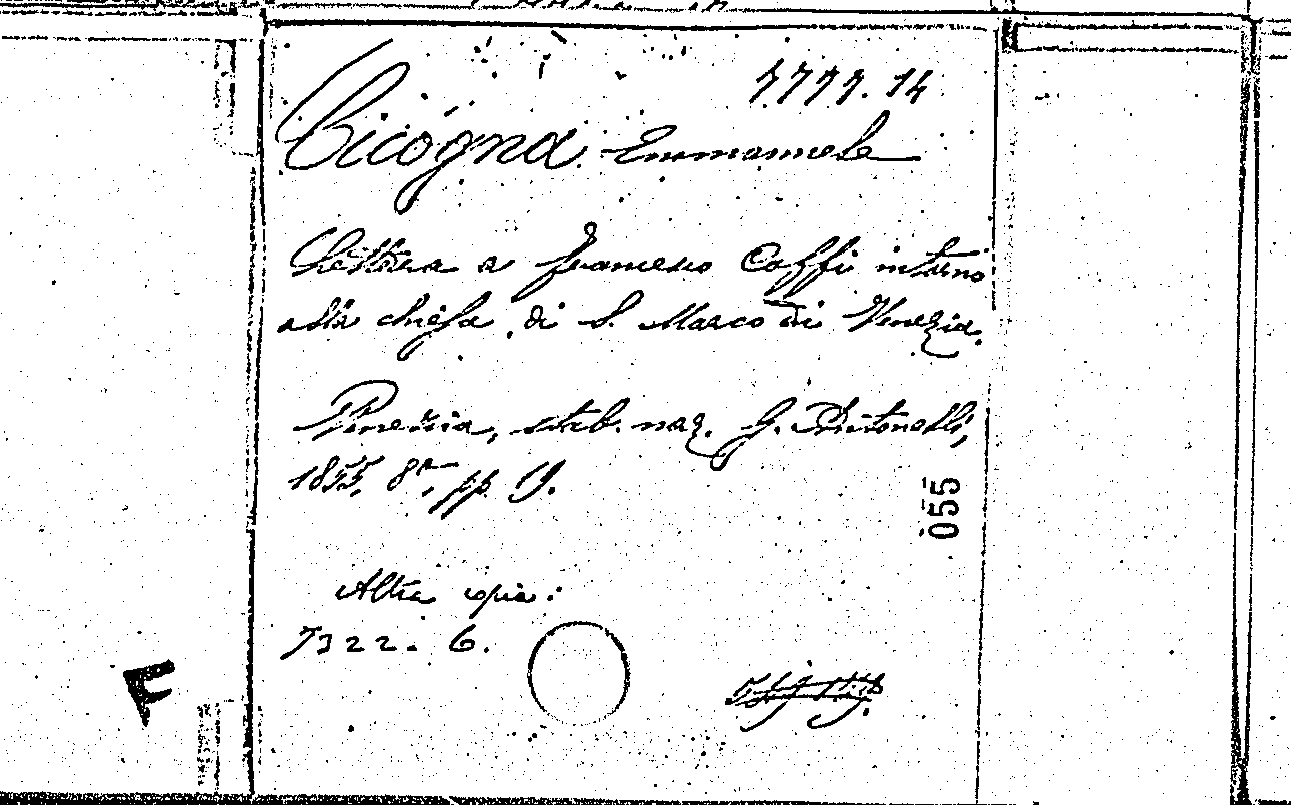 Cicogna Emmanuele
Lettera a Francesco Caffi intorno
alla chiesa di S. Marco di Venezia.
Venezia, stab. naz. G. Antonelli,
1855, 8°, pp. 19.
055
Altra copia:
7322. 6.
F